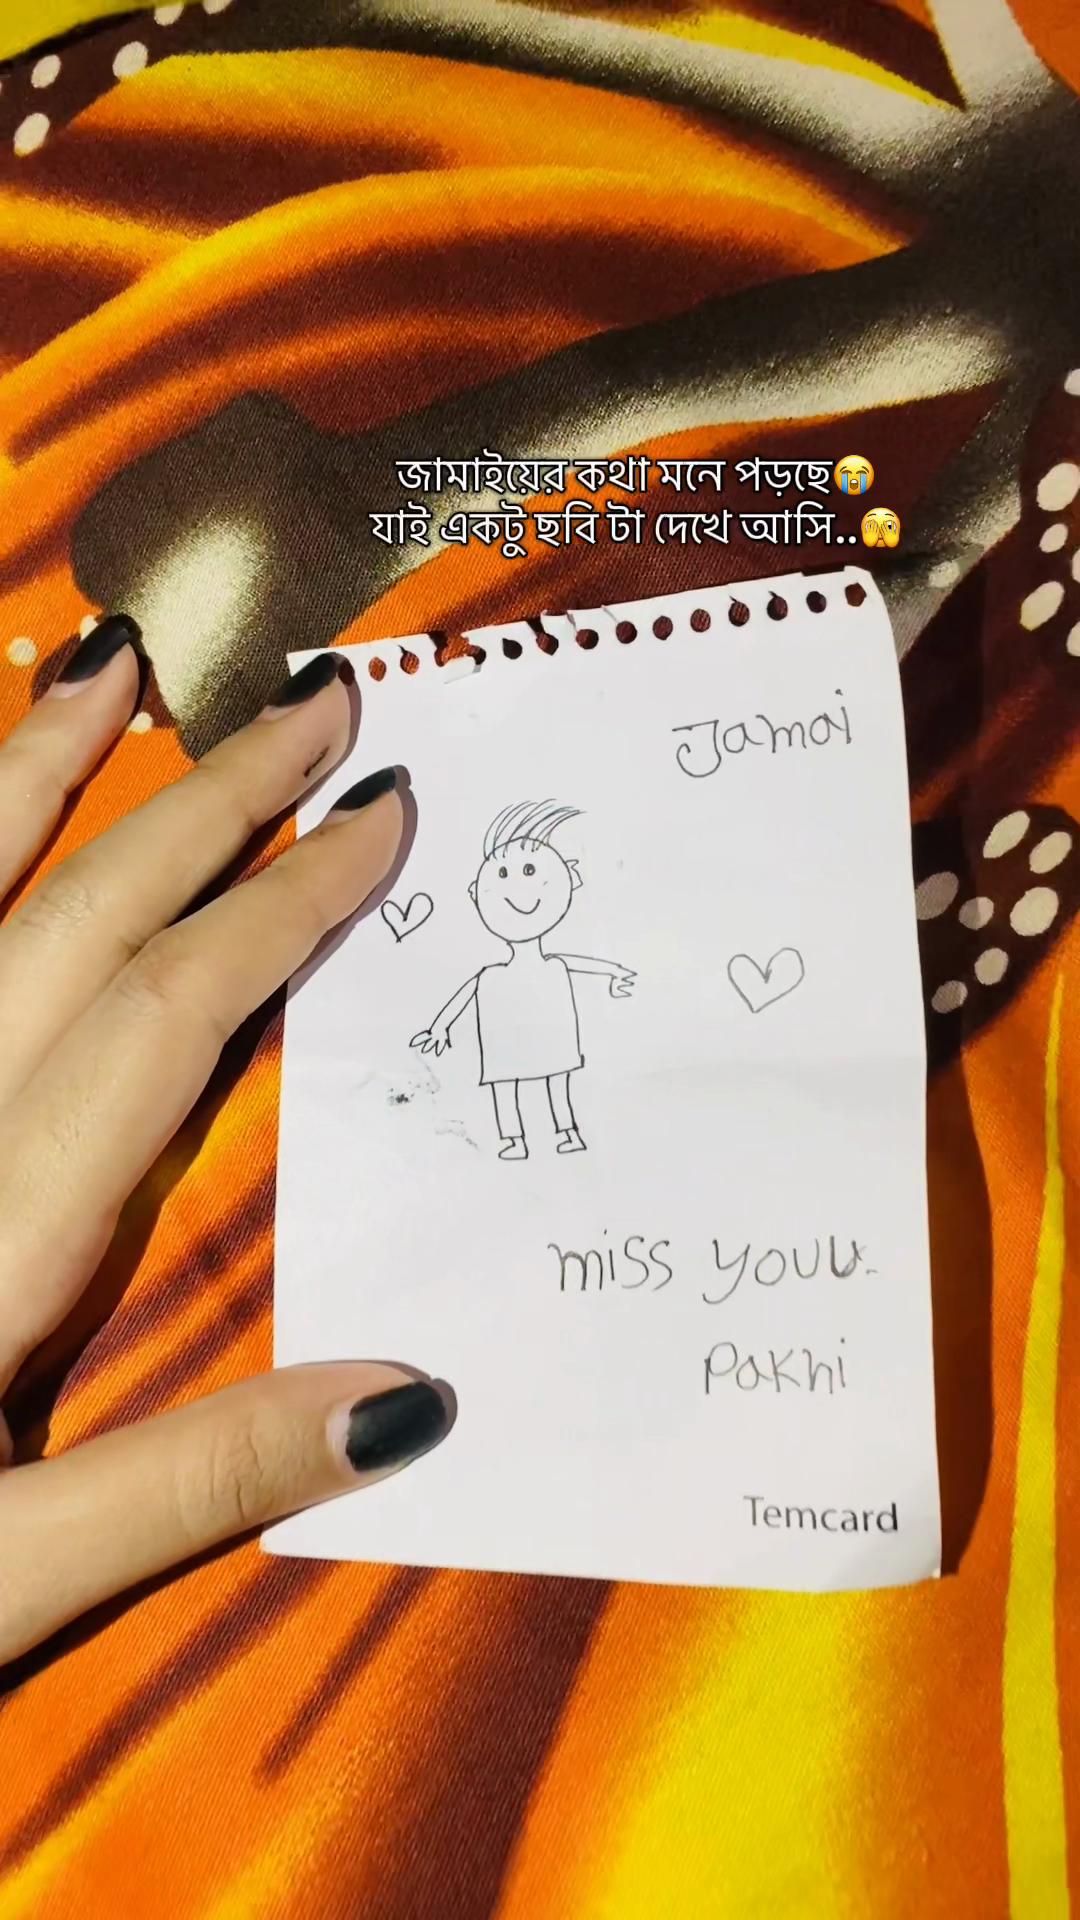 জামাইয়ের কথা মনে পড়ছে😭
যাই একটু ছবি টা দেখে আসি..🫣
Jamai
miss youu.
Pakhi
Temcard